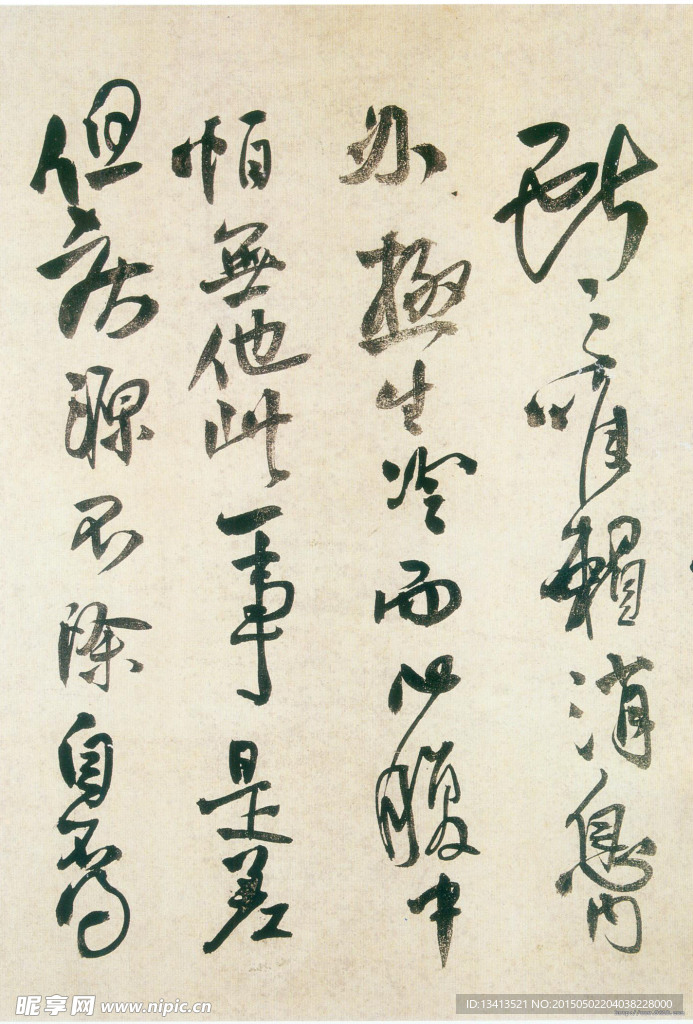 斷之唯賴消息內
外極生冷而心腹中
恒無他此一事是差
但疾源不除自不得
昵享网 www.nipic.cn
ID:13413521 NO:20150502204038228000